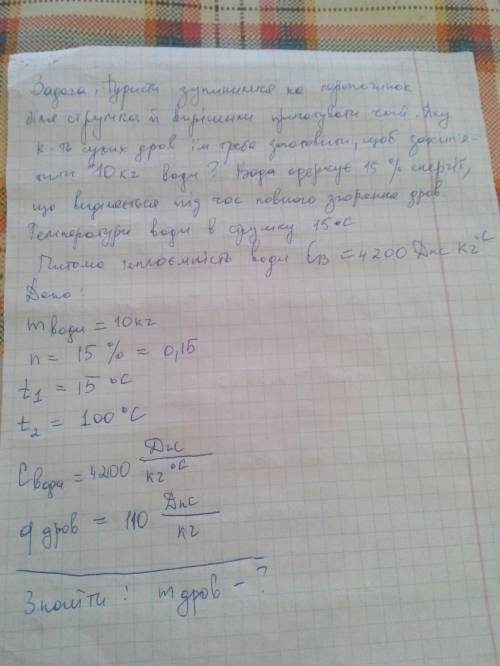 Задача. Туристи зупинилися на відпочинок
біля струмка й вирішили приготувати чай. Яку
к-ть сухих дров їм треба заготовити, щоб закип'я-
тити 10кг води? Вода одержує 15% енергії,
що виділяється під час повного згорання дров.
Температура води в струмку 15°C
Питома теплоємність води Cв = 4200 Дж кг°C
Дано:
m води = 10кг
n = 15% = 0,15
t1 = 15°C
t2 = 100°C
C води = 4200 Дж/кг°C
q дров = 110 Дж/кг
Знайти: m дров - ?